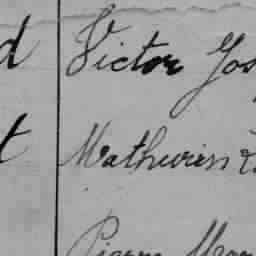 d Victor Jos
t Mathurin
Pierre Mar